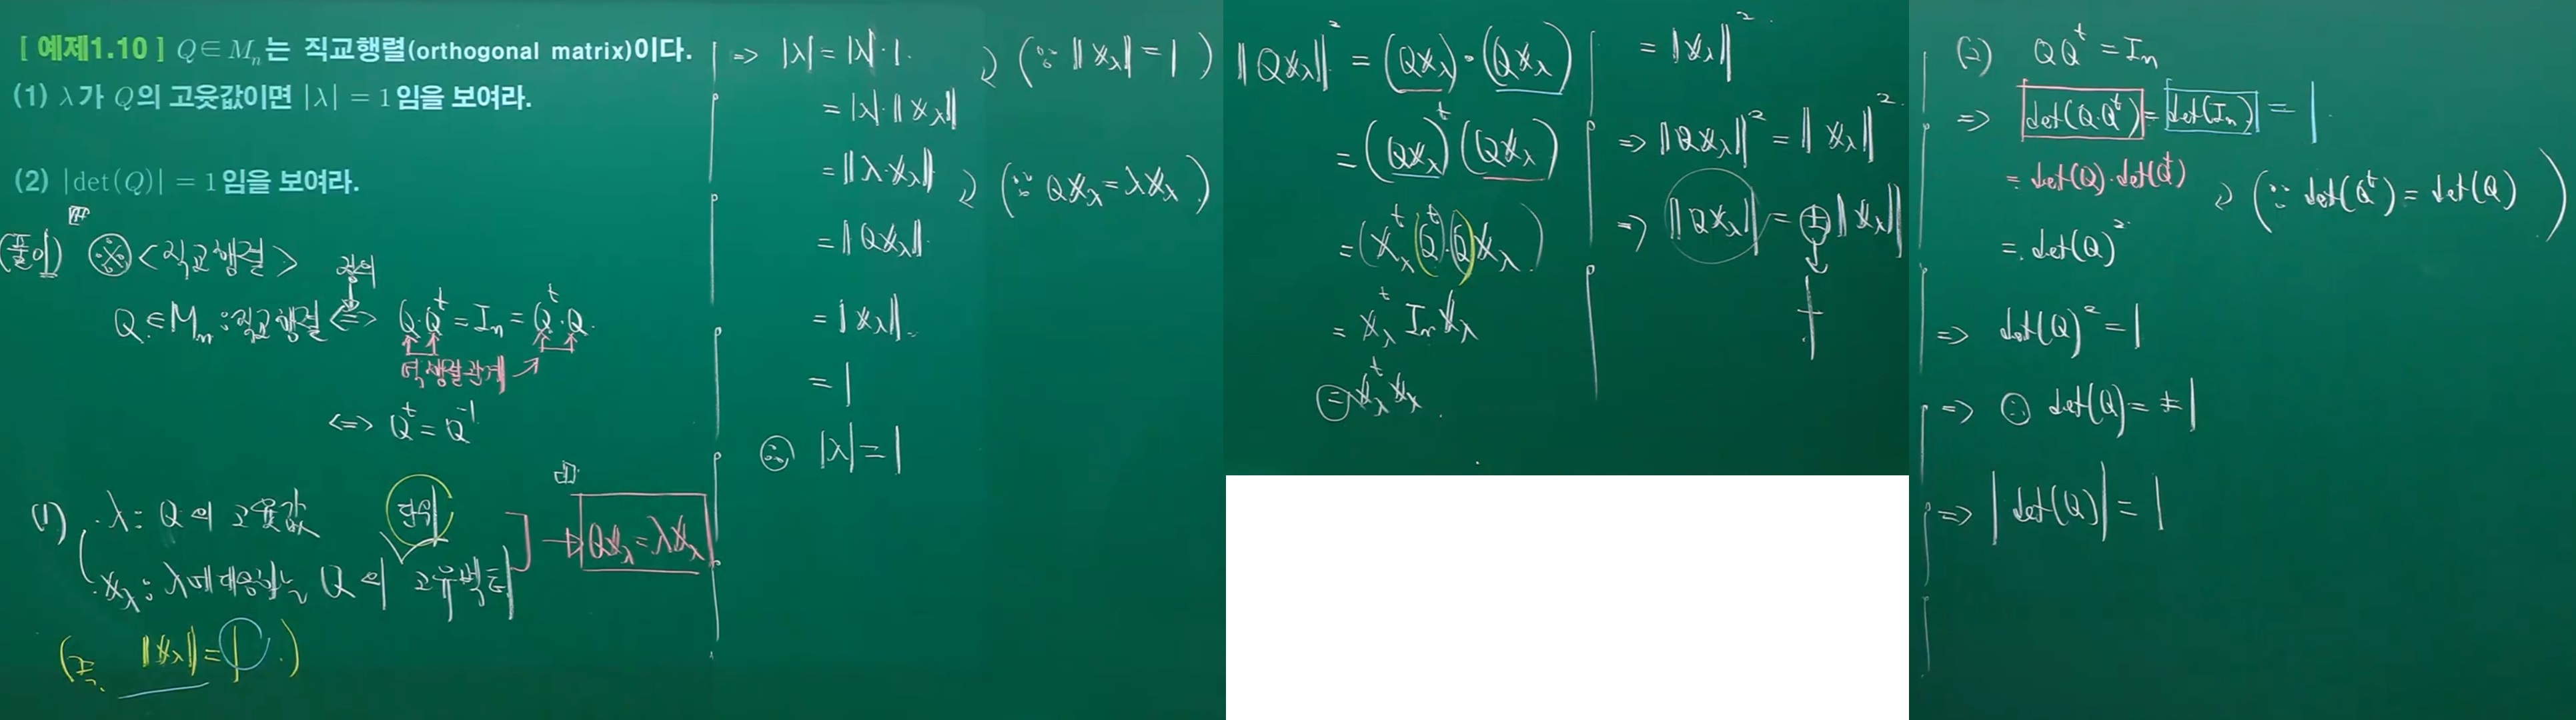 [ 예제1.10 ] Q∈Mₙ는 직교행렬(orthogonal matrix)이다.
(1) λ가 Q의 고윳값이면 |λ| = 1임을 보여라.
(2) |det(Q)| = 1임을 보여라.
(풀이) ※ <직교행렬>
정의
Q∈Mₙ : 직교행렬 <=> Q·Qᵗ = Iₙ = Qᵗ·Q.
역행렬관계
<=> Qᵗ = Q⁻¹
(1) · λ : Q의 고윳값
단위
· x_λ : λ에 대응하는 Q의 고유벡터
Qx_λ = λx_λ
( ‖x_λ‖ = 1 . )
=> |λ| = |λ|·1.
(∵ ‖x_λ‖ = 1 )
= |λ|·‖x_λ‖
= ‖λ·x_λ‖
(∵ Qx_λ = λx_λ )
= ‖Qx_λ‖.
= ‖x_λ‖.
= 1
∴ |λ| = 1
‖Qx_λ‖² = (Qx_λ)·(Qx_λ)
= (Qx_λ)ᵗ(Qx_λ)
= (x_λᵗ Qᵗ·Q x_λ)
= x_λᵗ Iₙ x_λ
= x_λᵗ x_λ .
= ‖x_λ‖² .
=> ‖Qx_λ‖² = ‖x_λ‖² .
=> ‖Qx_λ‖ = ± ‖x_λ‖
+
(2) QQᵗ = Iₙ
=> det(Q·Qᵗ) = det(Iₙ) = 1.
= det(Q)·det(Qᵗ)
(∵ det(Qᵗ) = det(Q) )
= det(Q)²
=> det(Q)² = 1
=> ∴ det(Q) = ±1
=> |det(Q)| = 1